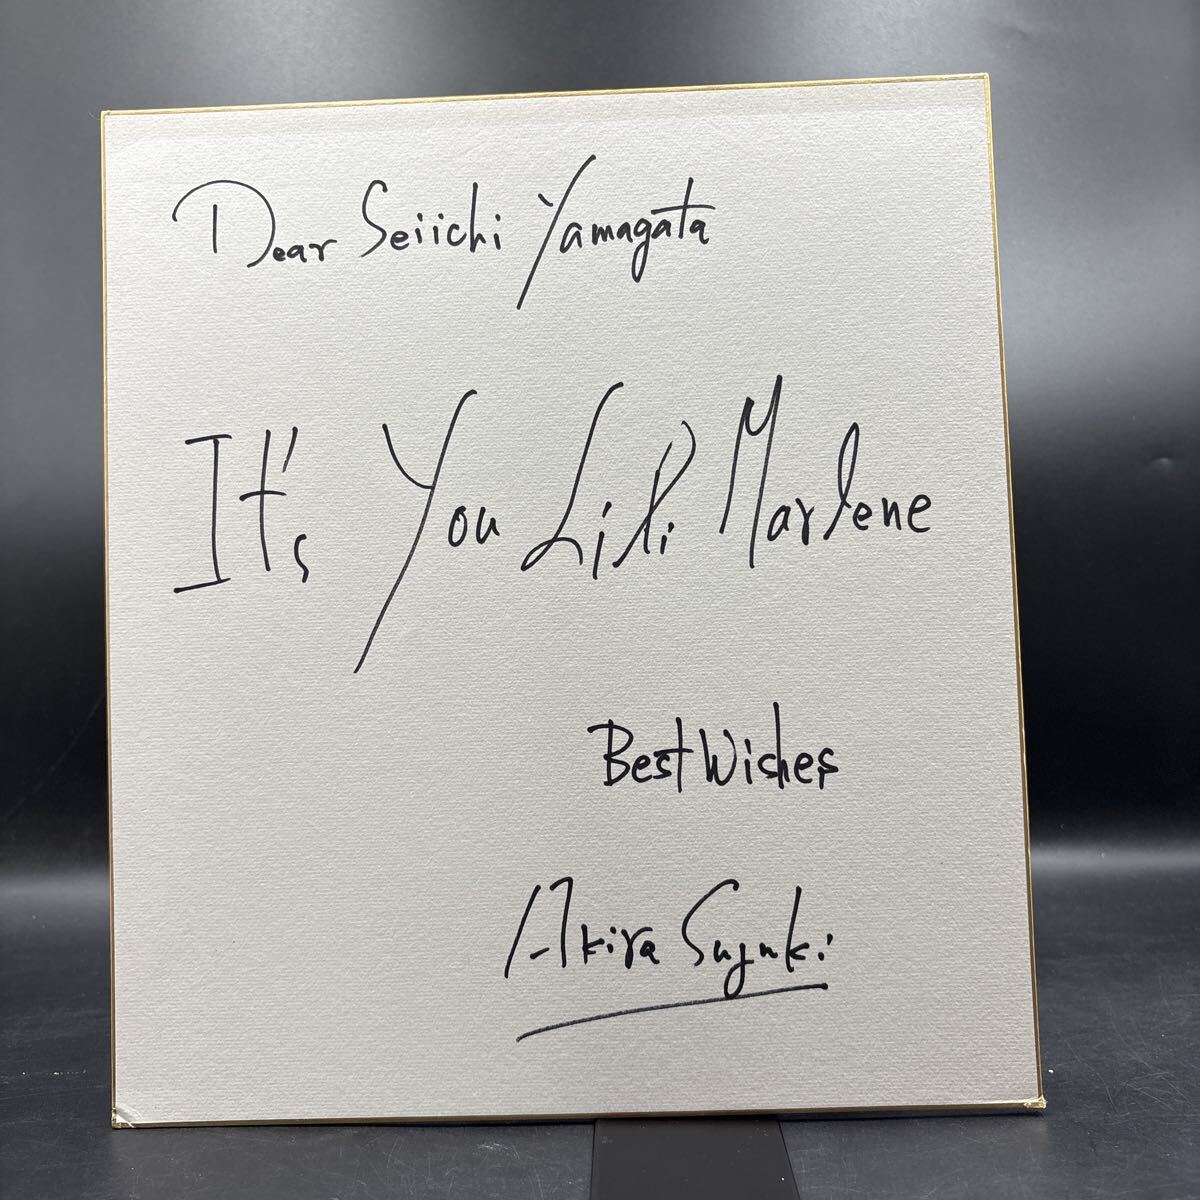 Dear Seiichi Yamagata
It's You Lili Marlene
Best Wishes
Akira Suzuki